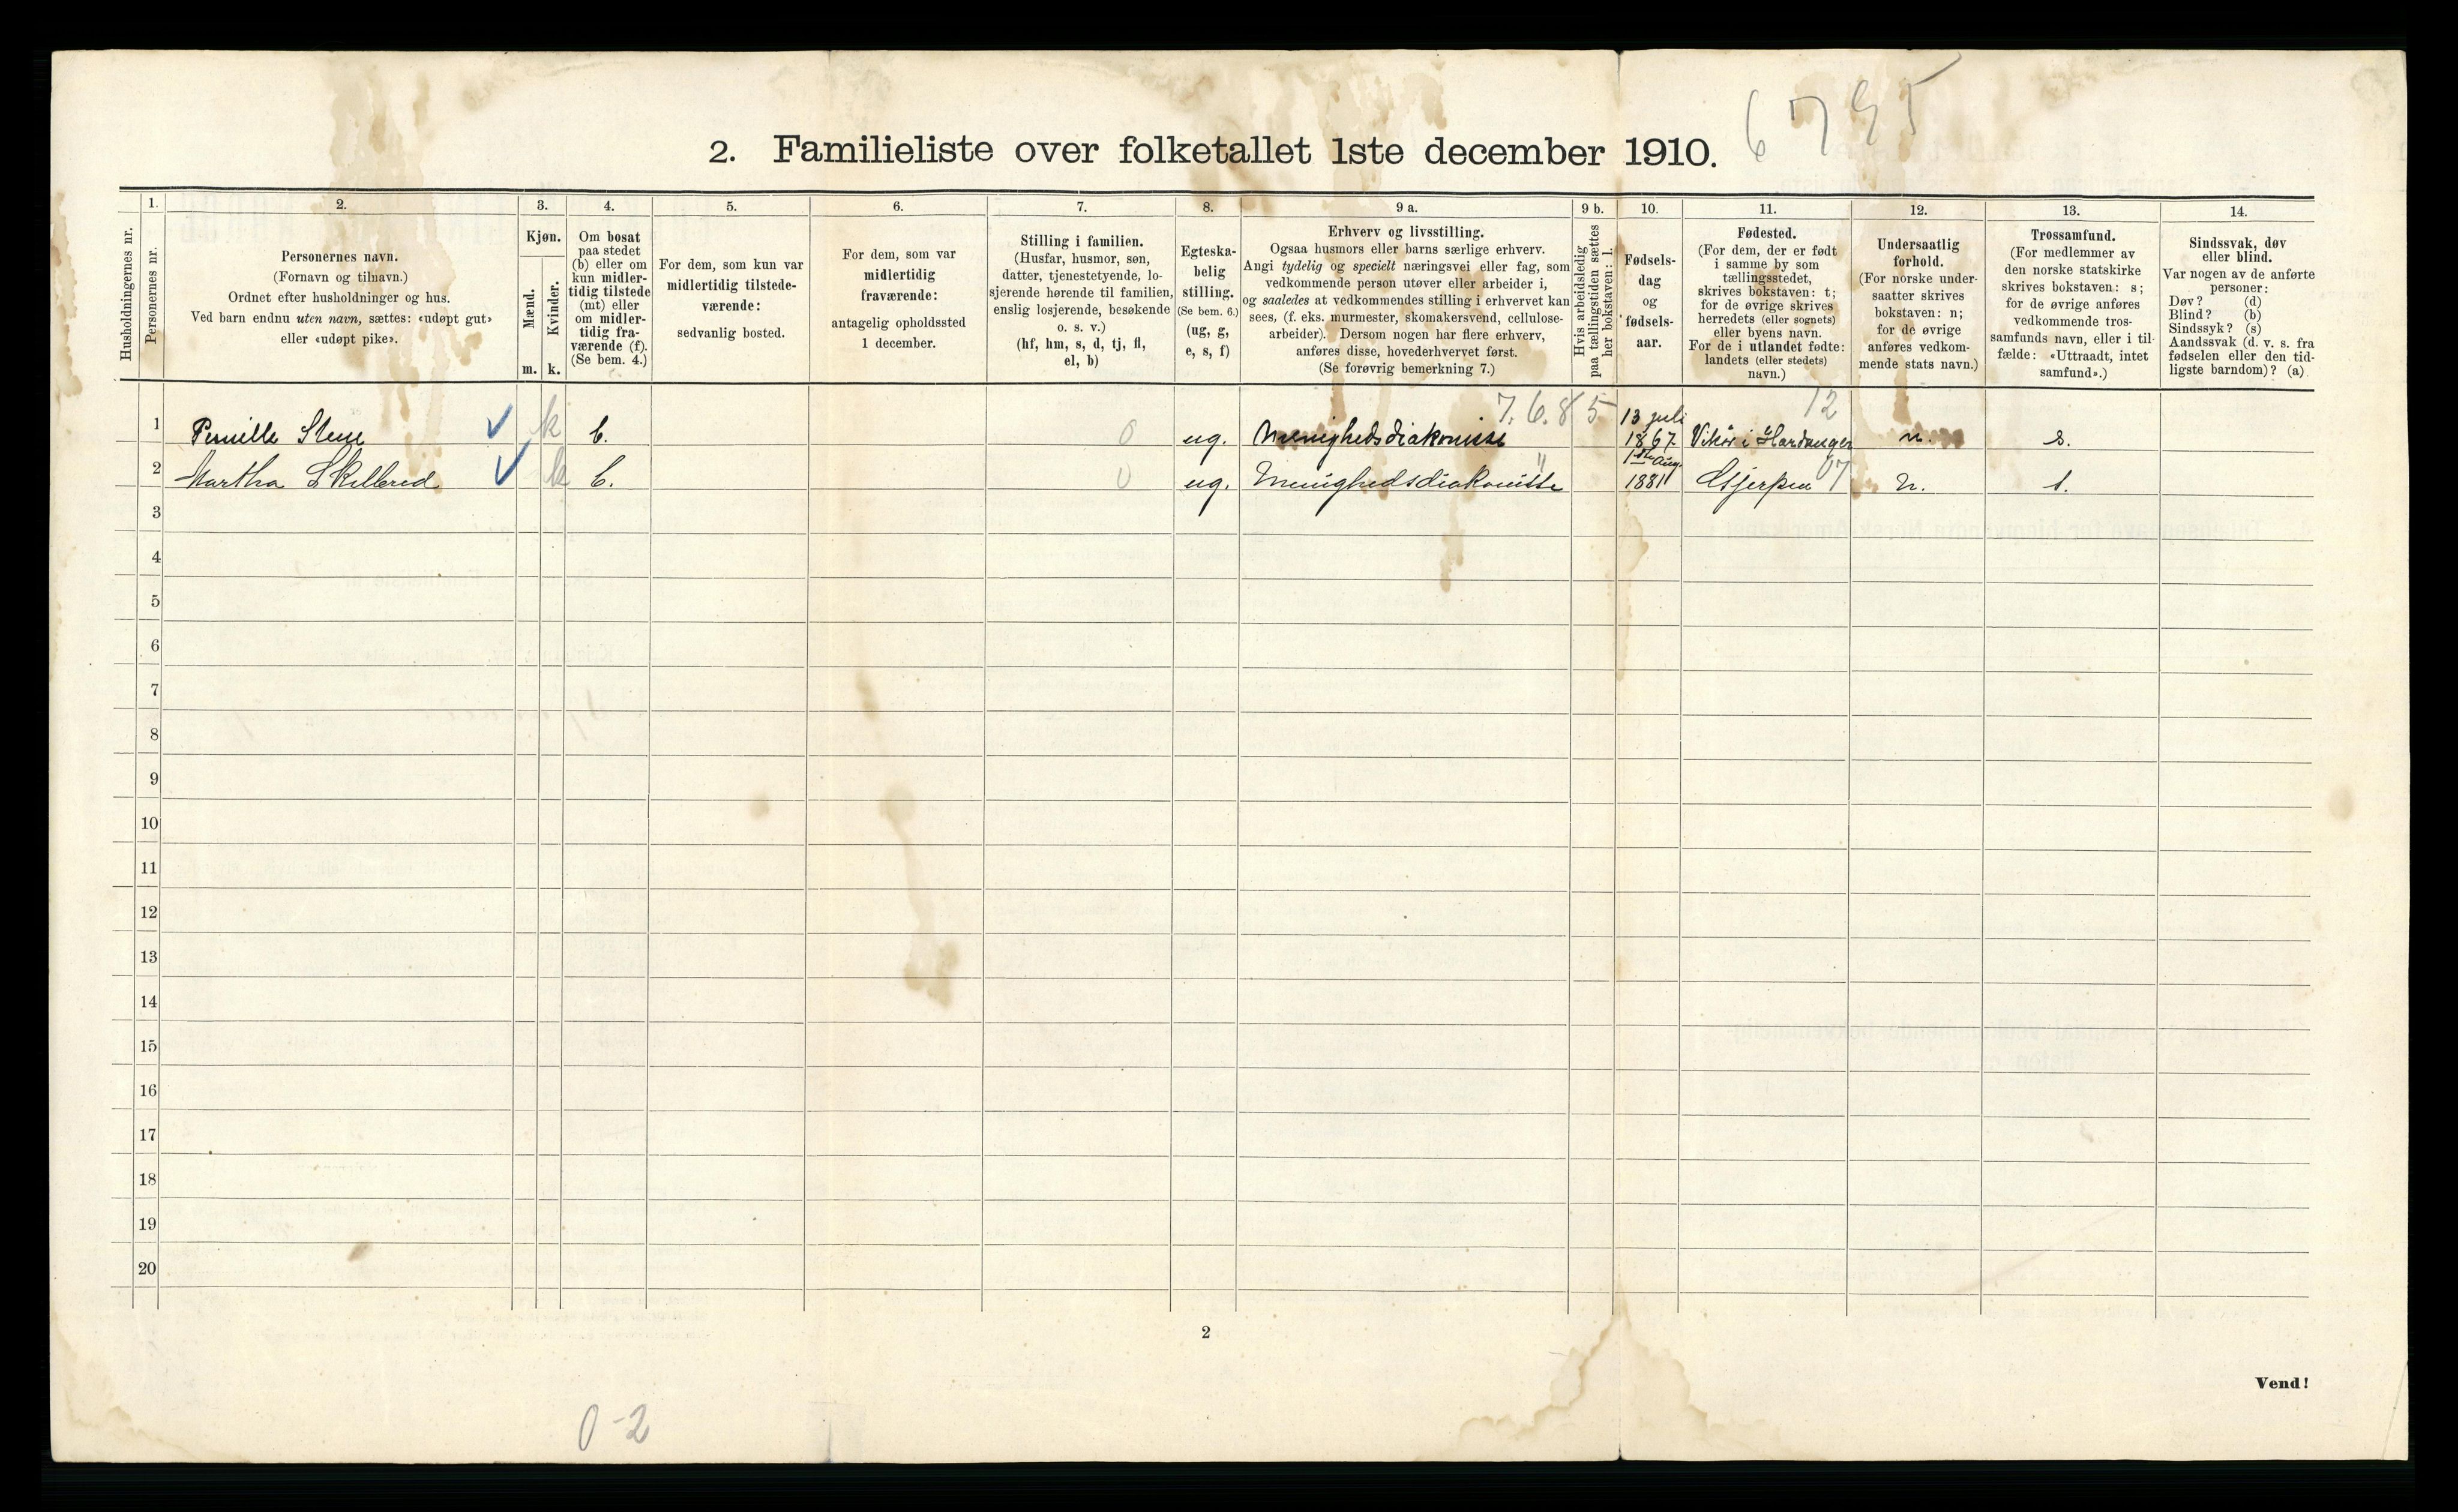 6795
2. Familieliste over folketallet 1ste december 1910.
Husholdningernes nr.
1.
Personernes nr.
2.
Personernes navn.
(Fornavn og tilnavn.)
Ordnet efter husholdninger og hus.
Ved barn endnu uten navn, sættes: «udøpt gut»
eller «udøpt pike».
3.
Kjøn.
Mænd.
Kvinder.
m. k.
4.
Om bosat
paa stedet
(b) eller om
kun midler-
tidig tilstede
(mt) eller
om midler-
tidig fra-
værende (f).
(Se bem. 4.)
5.
For dem, som kun var
midlertidig tilstede-
værende:
sedvanlig bosted.
6.
For dem, som var
midlertidig
fraværende:
antagelig opholdssted
1 december.
7.
Stilling i familien.
(Husfar, husmor, søn,
datter, tjenestetyende, lo-
sjerende hørende til familien,
enslig losjerende, besøkende
o. s. v.)
(hf, hm, s, d, tj, fl,
el, b)
8.
Egteska-
belig
stilling.
(Se bem. 6.)
(ug, g,
e, s, f)
9 a.
Erhverv og livsstilling.
Ogsaa husmors eller barns særlige erhverv.
Angi tydelig og specielt næringsvei eller fag, som
vedkommende person utøver eller arbeider i,
og saaledes at vedkommendes stilling i erhvervet kan
sees, (f. eks. murmester, skomakersvend, cellulose-
arbeider). Dersom nogen har flere erhverv,
anføres disse, hovederhvervet først.
(Se forøvrig bemerkning 7.)
9 b.
Hvis arbeidsledig
paa tællingstiden sættes
her bokstaven: l.
10.
Fødsels-
dag
og
fødsels-
aar.
11.
Fødested.
(For dem, der er født
i samme by som
tællingsstedet,
skrives bokstaven: t;
for de øvrige skrives
herredets (eller sognets)
eller byens navn.
For de i utlandet fødte:
landets (eller stedets)
navn.)
12.
Undersaatlig
forhold.
(For norske under-
saatter skrives
bokstaven: n;
for de øvrige
anføres vedkom-
mende stats navn.)
13.
Trossamfund.
(For medlemmer av
den norske statskirke
skrives bokstaven: s;
for de øvrige anføres
vedkommende tros-
samfunds navn, eller i til-
fælde: «Uttraadt, intet
samfund».)
14.
Sindssvak, døv
eller blind.
Var nogen av de anførte
personer:
Døv? (d)
Blind? (b)
Sindssyk? (s)
Aandssvak (d. v. s. fra
fødselen eller den tid-
ligste barndom)? (a)
7.6.85 13 juli 12
1 Pernille Stene k b. 0 ug. Menighedsdiakonisse 1867. Vikør i Hardanger n. s.
" 1ste Aug. 07
2 Martha Skilbred k b. 0 ug. Menighedsdiakonisse 1881 Gjerpen n. s.
3
4
5
6
7
8
9
10
11
12
13
14
15
16
17
18
19
20
2
Vend!
0-2